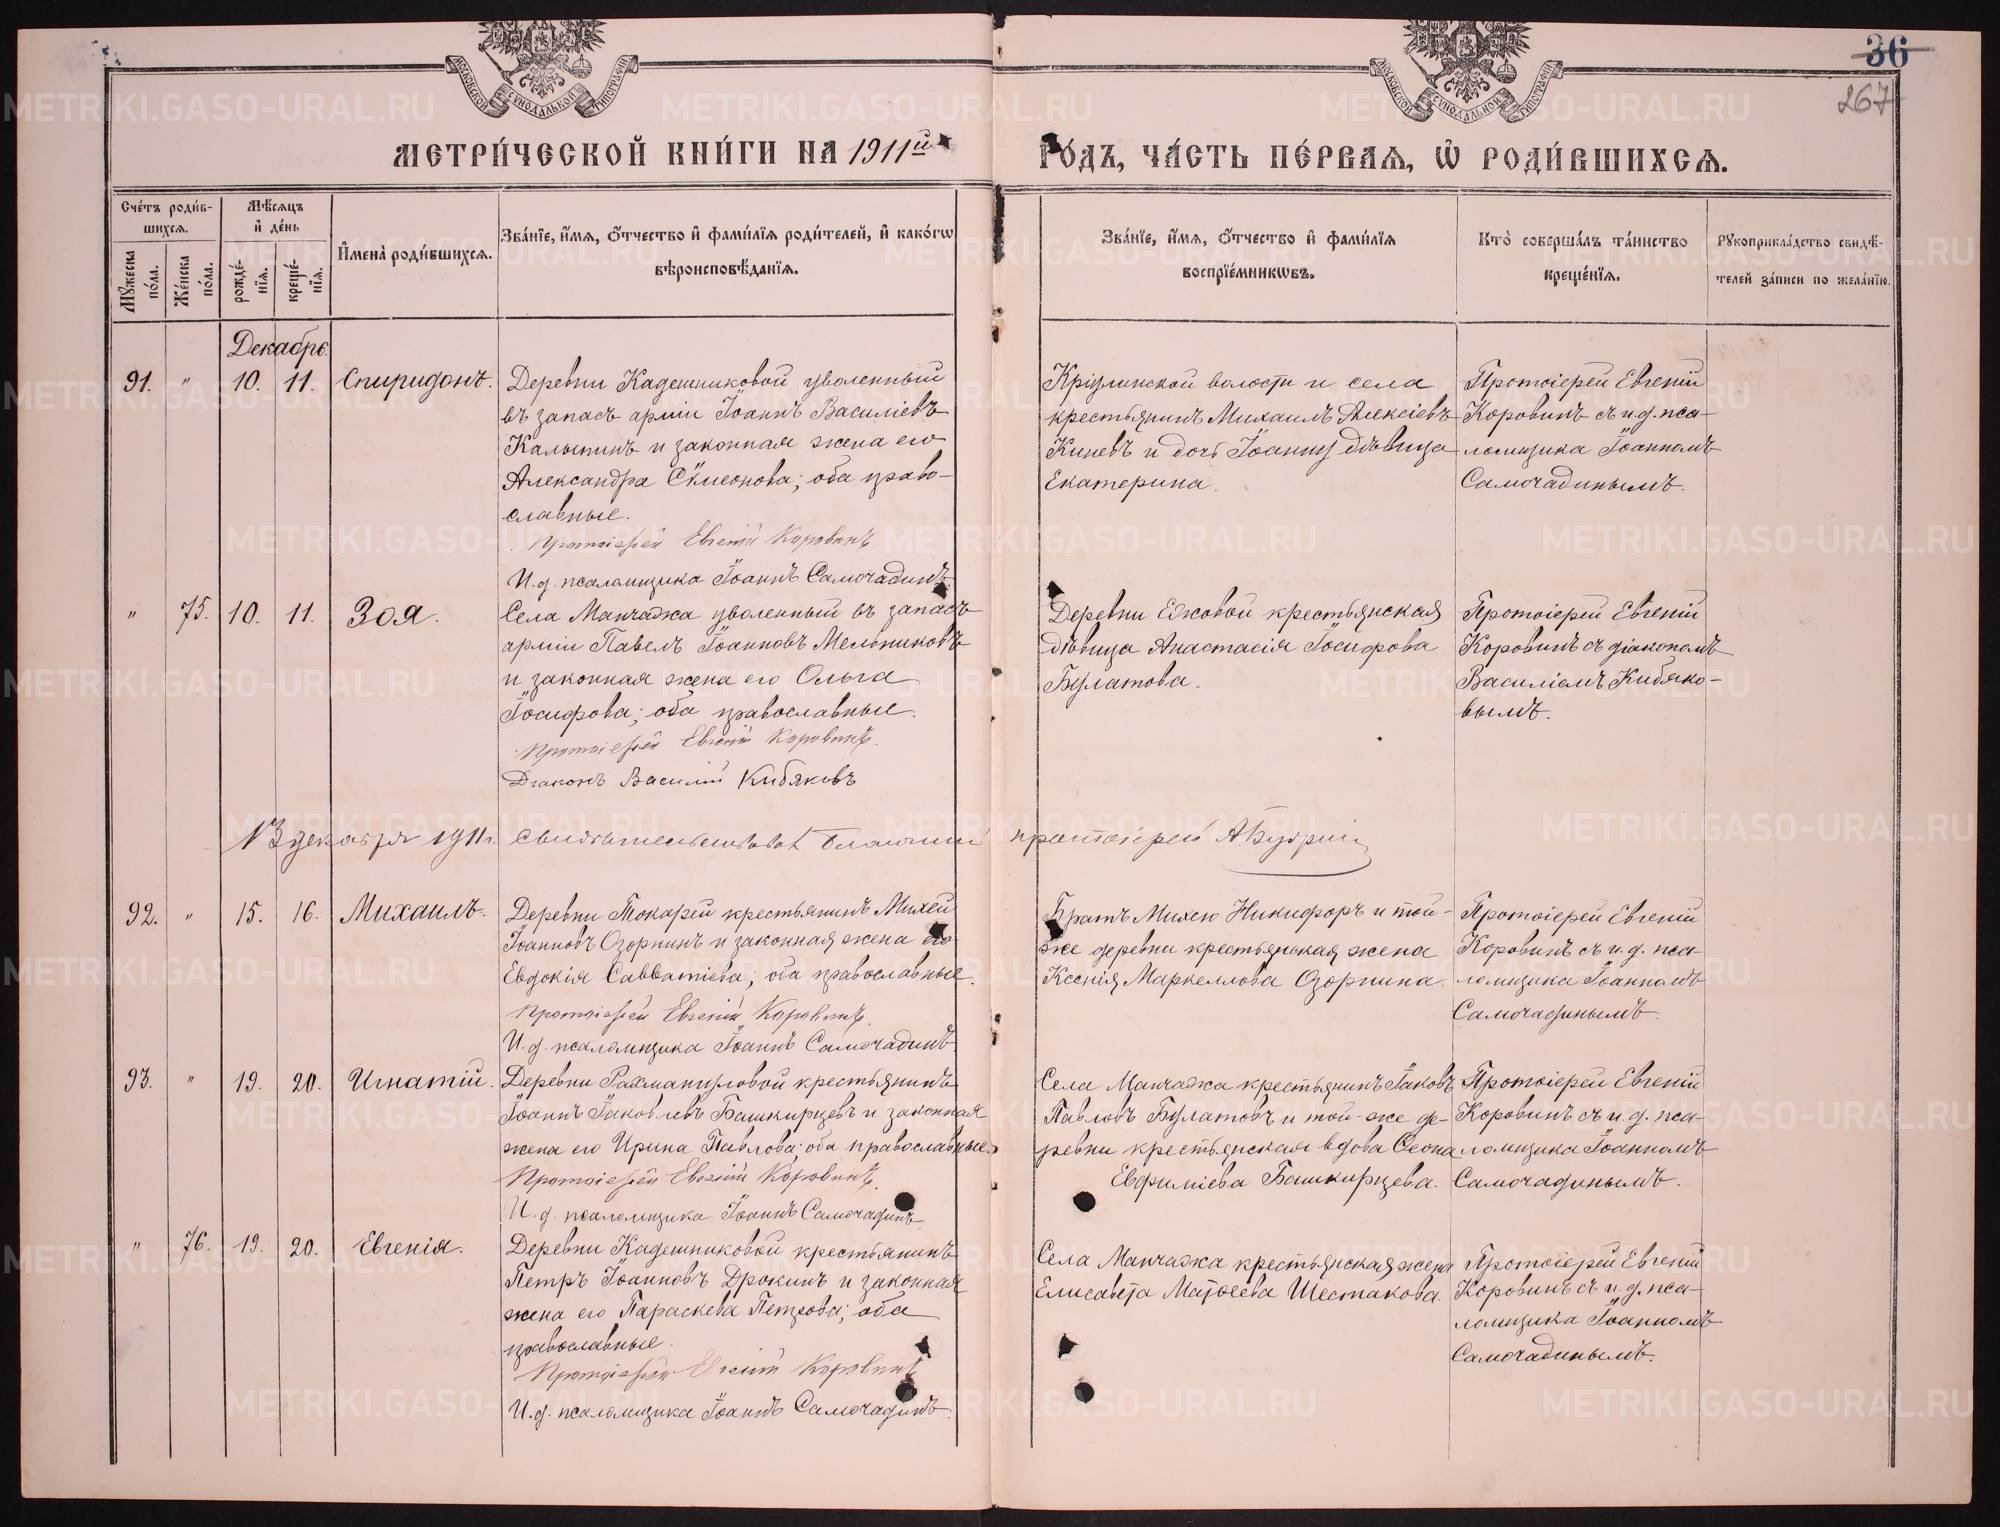 36
267
МОСКОВСКОЙ СѴНОДАЛЬНОЙ ТИПОГРАФІИ
МОСКОВСКОЙ СѴНОДАЛЬНОЙ ТИПОГРАФІИ
МЕТРИ́ЧЕСКОЙ КНИ́ГИ НА 1911й
ГО́ДЪ, ЧА́СТЬ ПЕ́РВАѦ, Ѡ҆ РОДИ́ВШИХСѦ.
Сче́тъ роди́в-
шихсѧ.
Мѣ́сѧцъ
и҆ де́нь
Мꙋ́жеска
по́ла.
Же́нска
по́ла.
рожде́-
нїѧ.
креще́-
нїѧ.
И҆мена̀ роди́вшихсѧ.
Зва́нїе, и҆́мѧ, ѻ҆́тчество и҆ фами́лїѧ роди́телей, и҆ како́гѡ
вѣроисповѣ́данїѧ.
Зва́нїе, и҆́мѧ, ѻ҆́тчество и҆ фами́лїѧ
воспрїе́мникѡвъ.
Кто̀ соверша́лъ та́инство
креще́нїѧ.
Рꙋкоприкла́дство свидѣ́-
телей за́писи по жела́нїю.
Декабрь.
91. „ 10. 11. Спиридонъ.
Деревни Кадешниковой уволенный
въ запасъ арміи Іоаннъ Василіевъ
Калынинъ и законная жена его
Александра Сѷмеонова; оба право-
славные.
Протоіерей Евгеній Коровинъ
И. д. псаломщика Іоаннъ Самочадинъ.
Кріулинской волости и села
крестьянинъ Михаилъ Алексіевъ
Киневъ и дочь Іоанну дѣвица
Екатерина.
Протоіерей Евгеній
Коровинъ съ и. д. пса-
ломщика Іоанномъ
Самочадинымъ.
„ 75. 10. 11. Зоя.
Села Манчажа уволенный въ запасъ
арміи Павелъ Іоанновъ Мельниковъ
и законная жена его Ольга
Іосифова; оба православные.
Протоіерей Евгеній Коровинъ.
Діаконъ Василій Кибяковъ
Деревни Ежовой крестьянская
дѣвица Анастасія Іосифова
Булатова.
Протоіерей Евгеній
Коровинъ съ діакономъ
Василіемъ Кибяко-
вымъ.
13 декабря 1911 г. свидѣтельствовалъ Благочинный протоіерей А
92. „ 15. 16. Михаилъ.
Деревни Токарей крестьянинъ Михей
Іоанновъ Озорнинъ и законная жена его
Евдокія Савватіева; оба православные.
Протоіерей Евгеній Коровинъ.
И. д. псаломщика Іоаннъ Самочадинъ.
Братъ Михею Никифоръ и той-
же деревни крестьянская жена
Ксенія Маркеллова Озорнина.
Протоіерей Евгеній
Коровинъ съ и. д. пса-
ломщика Іоанномъ
Самочадинымъ.
93. „ 19. 20. Игнатій.
Деревни Рахмангуловой крестьянинъ
Іоаннъ Іаковлевъ Башкирцевъ и законная
жена его Ирина Павлова; оба православные.
Протоіерей Евгеній Коровинъ.
И. д. псаломщика Іоаннъ Самочадинъ.
Села Манчажа крестьянинъ Іаковъ
Павловъ Булатовъ и той-же де-
ревни крестьянская вдова Ѳеона
Евфиміева Башкирцева.
Протоіерей Евгеній
Коровинъ съ и. д. пса-
ломщика Іоанномъ
Самочадинымъ.
„ 76. 19. 20. Евгенія.
Деревни Кадешниковой крестьянинъ
Петръ Іоанновъ Дрокинъ и законная
жена его Параскева Петрова; оба
православные.
Протоіерей Евгеній Коровинъ
И. д. псаломщика Іоаннъ Самочадинъ.
Села Манчажа крестьянская жена
Елисавета Матѳеева Шестакова.
Протоіерей Евгеній
Коровинъ съ и. д. пса-
ломщика Іоанномъ
Самочадинымъ.
METRIKI.GASO-URAL.RU